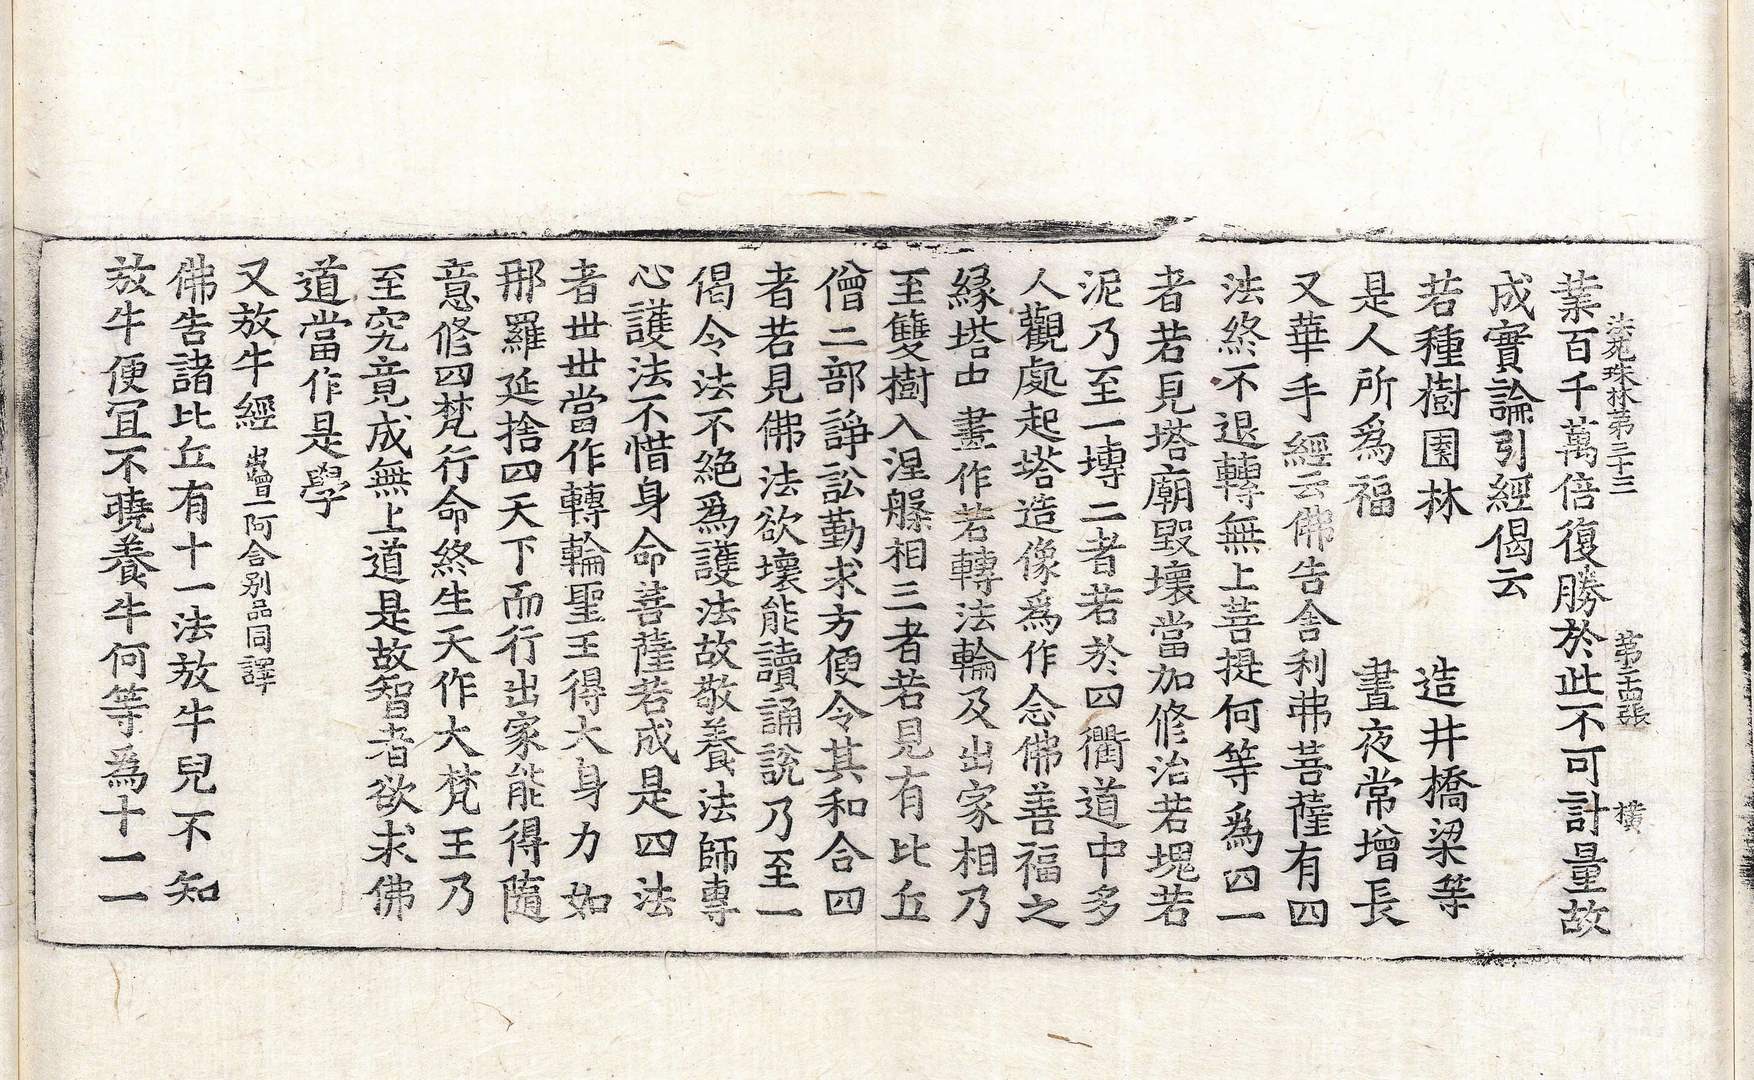 法苑珠林第三十三 第二十四張 橫
業百千萬倍復勝於此不可計量故
成實論引經偈云
若種樹園林 造井橋梁等
是人所爲福 晝夜常增長
又華手經云佛告舍利弗菩薩有四
法終不退轉無上菩提何等爲四一
者若見塔廟毀壞當加修治若塊若
泥乃至一塼二者若於四衢道中多
人觀處起塔造像爲作念佛善福之
緣塔中 畫作若轉法輪及出家相乃
至雙樹入涅槃相三者若見有比丘
僧二部諍訟勤求方便令其和合四
者若見佛法欲壞能讀誦說乃至一
偈令法不絕爲護法故敬養法師專
心護法不惜身命菩薩若成是四法
者世世當作轉輪聖王得大身力如
那羅延捨四天下而行出家能得隨
意修四梵行命終生天作大梵王乃
至究竟成無上道是故智者欲求佛
道當作是學
又放牛經 出曾一阿含別品同譯
佛告諸比丘有十一法放牛兒不知
放牛便宜不曉養牛何等爲十一一